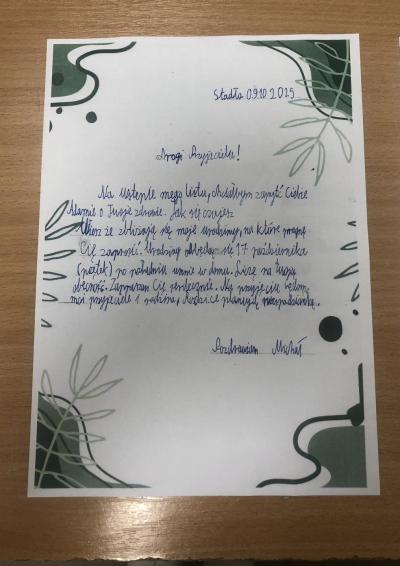 Stadła 09.10.2025
Drogi Przyjacielu!
Na wstępie mego listu, chciałbym zapytć Ciebie
Adamie o Twoje zdrowie. Jak się czujesz
Wiesz że zbliżają się moje urodziny, na które pragnę
Cię zaprosić. Urodziny odbędą się 17 października
(piątek) po południu umnie w domu. Liczę na twoją
obecność. Zapraszam Cię serdecznie. Na przyjęciu będą
moi przyjaciele i rodzina, rodzice planują niespodziankę.
Pozdrawiam Michał